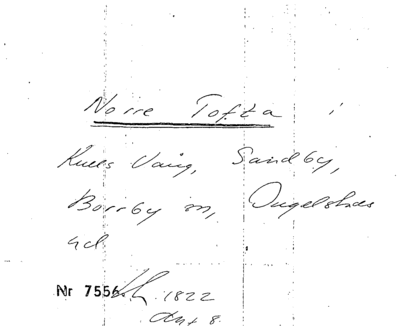 Norre Tofta i
Kulls Vång, Sandby,
Borrby sn, Ingelstads
hd.
Nr 7556. 1822
Akt 8.